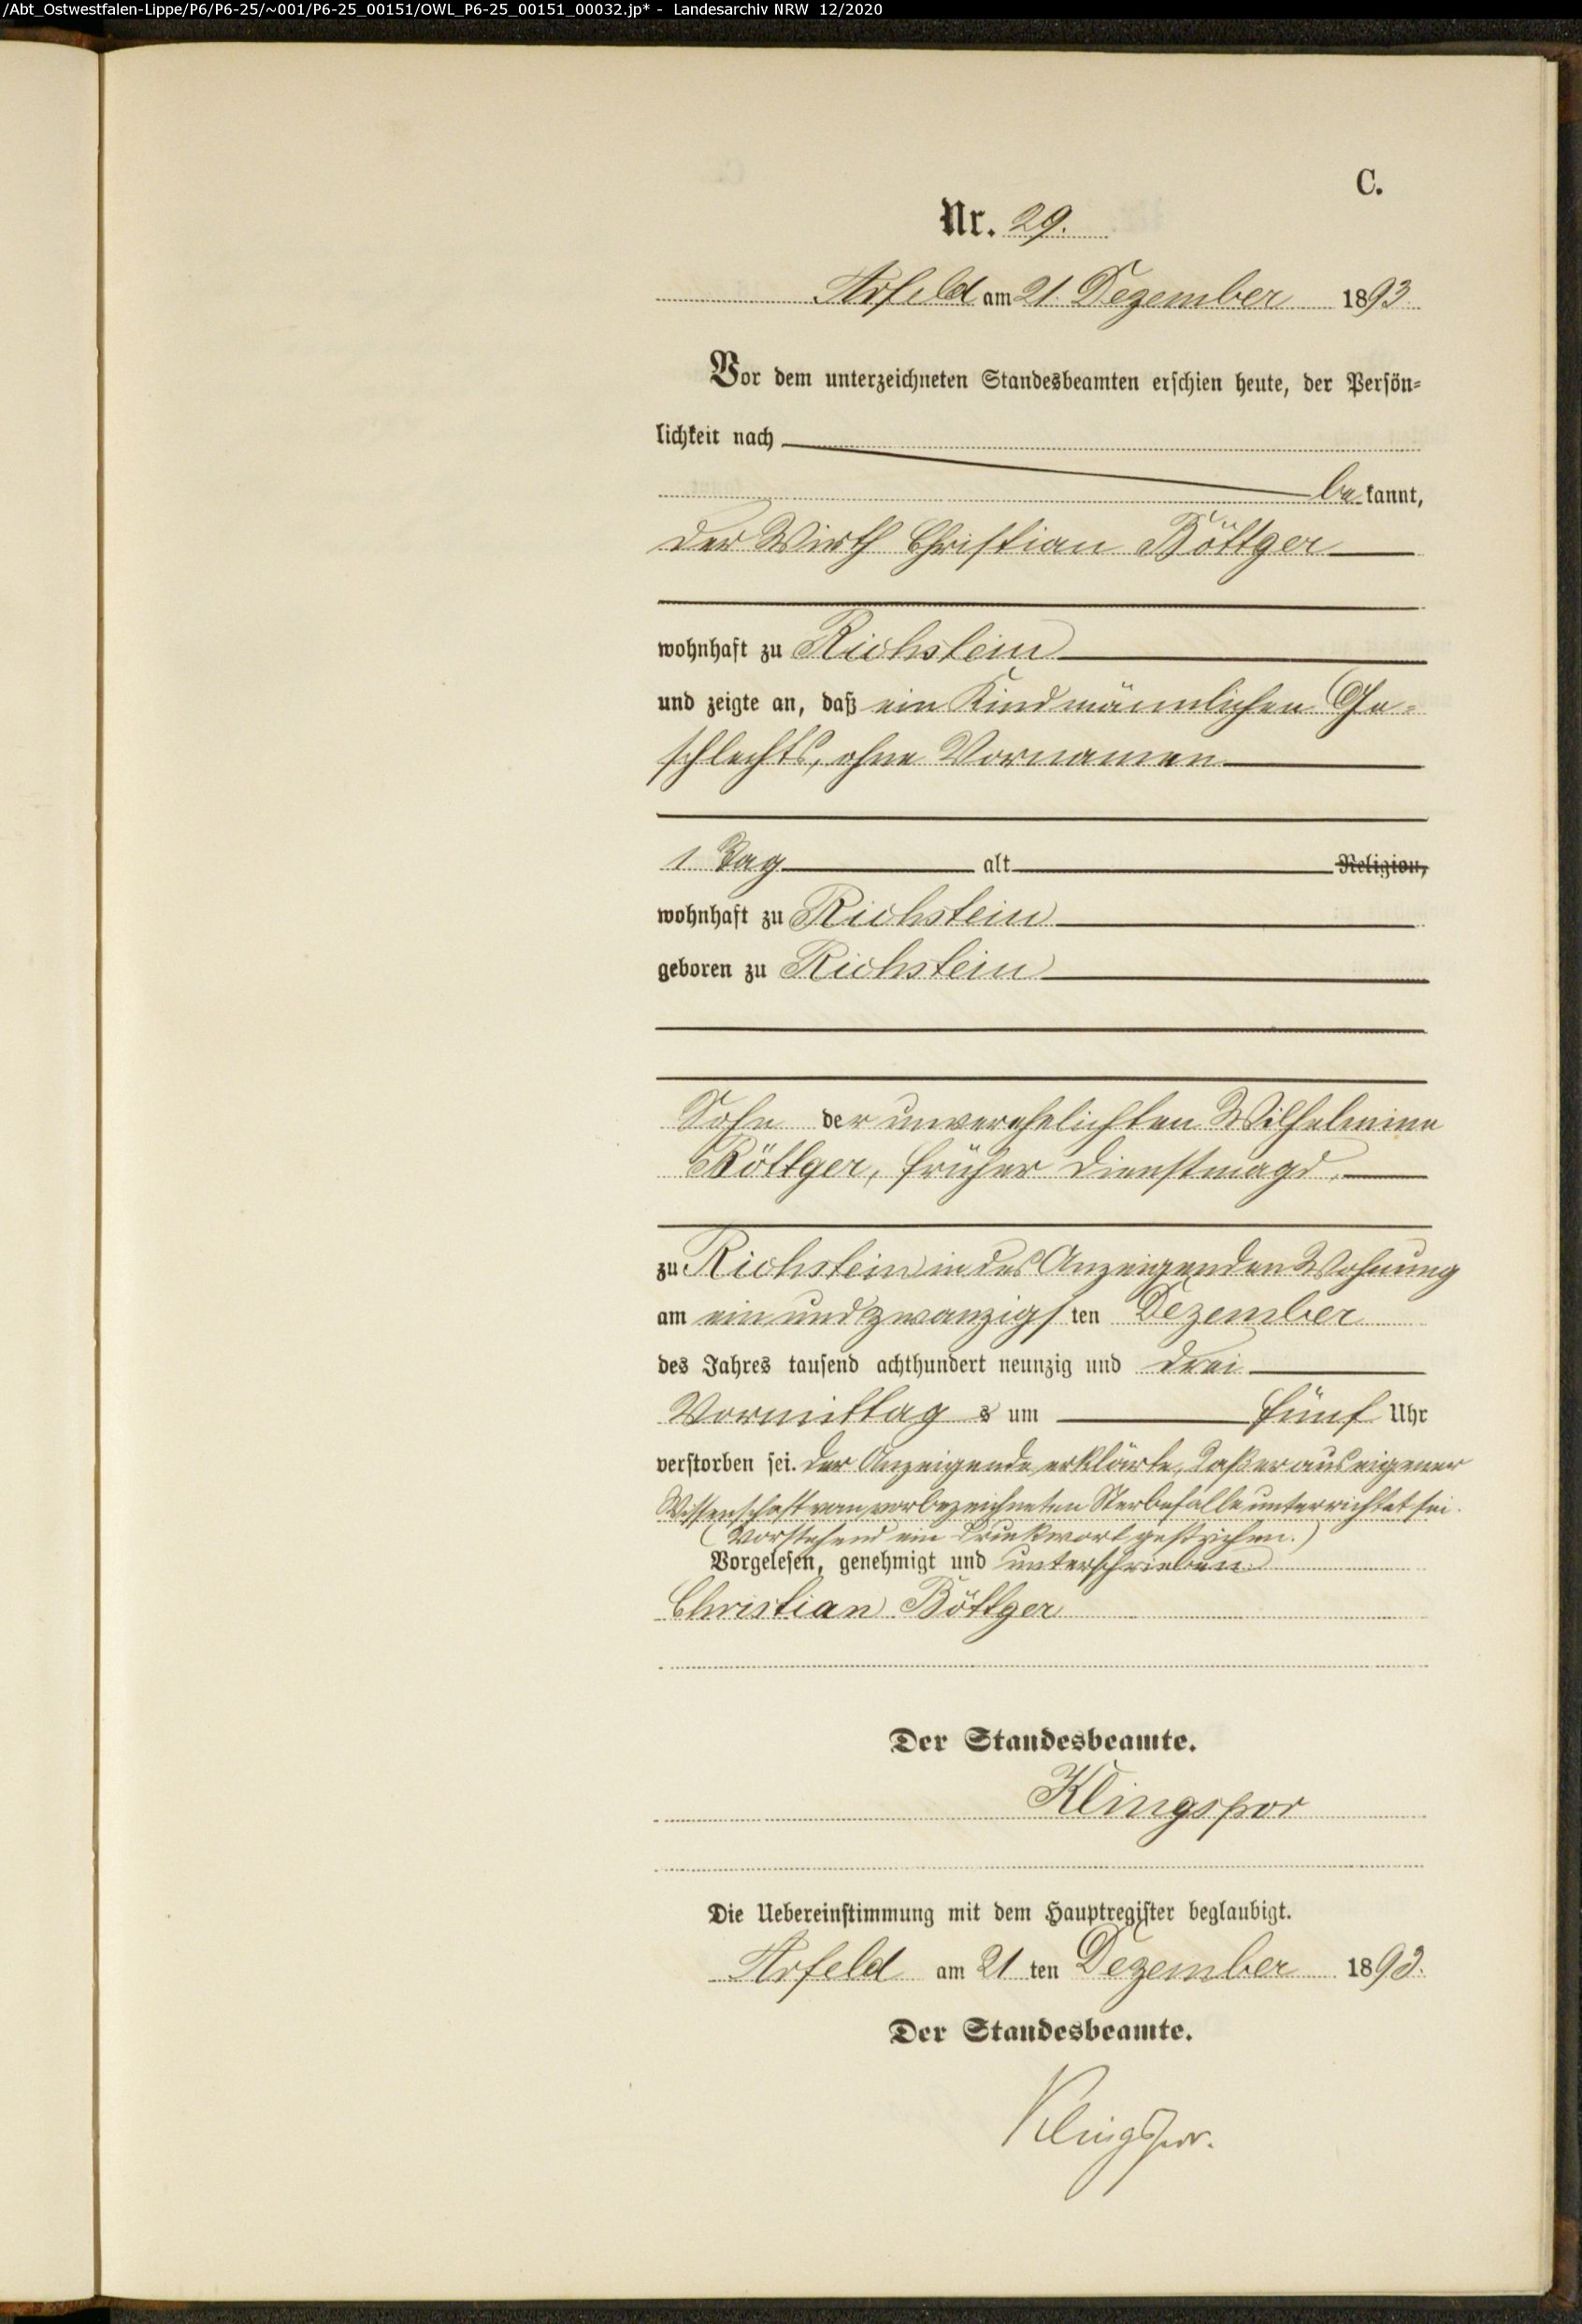 /Abt_Ostwestfalen-Lippe/P6/P6-25/~001/P6-25_00151/OWL_P6-25_00151_00032.jp* - Landesarchiv NRW 12/2020
C.
Nr. 29.
Arfeld am 21. Dezember 1893.
Vor dem unterzeichneten Standesbeamten erschien heute, der Persön-
lichkeit nach
bekannt,
der Wirth Christian Böttger
wohnhaft zu Richstein
und zeigte an, daß ein Kind männlichen Ge-
schlechts, ohne Vornamen
1 Tag alt Religion,
wohnhaft zu Richstein
geboren zu Richstein
Sohn der unverehelichten Wilhelmine
Böttger, früher Dienstmagd,
zu Richstein in des Anzeigenden Wohnung
am ein und zwanzigsten Dezember
des Jahres tausend achthundert neunzig und drei
Vormittags um fünf Uhr
verstorben sei. Der Anzeigende erklärte, daß er aus eigener
Wissenschaft vom vorbezeichneten Sterbefalle unterrichtet sei.
(Vorstehend ein Druckwort gestrichen.)
Vorgelesen, genehmigt und unterschrieben.
Christian Böttger
Der Standesbeamte.
Klingspor
Die Uebereinstimmung mit dem Hauptregister beglaubigt.
Arfeld am 21ten Dezember 1893.
Der Standesbeamte.
Klingspor.